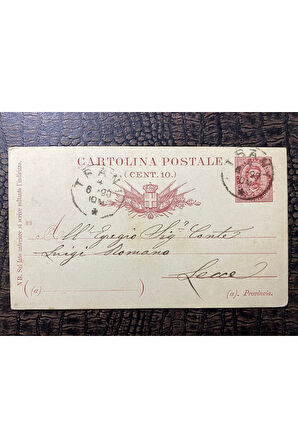 CARTOLINA POSTALE
(CENT. 10.)
TRANI
6
90
10M
TRANI
All'Egregio Sigr. Conte
Luigi Romano
Lecce
(a)
(a). Provincia.
NB. Sul lato anteriore si scrive soltanto l'indirizzo.